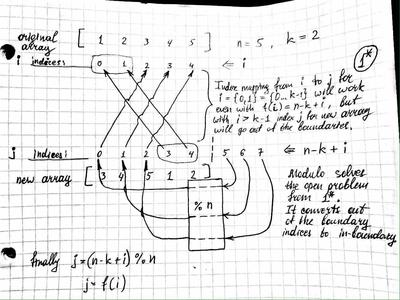 original array [ 1 2 3 4 5 ] n=5, k=2
i indices: 0 1 2 3 4 ⇐ i
1*
Index mapping from i to j for
i = {0,1} = {0...k-1} will work
even with f(i) = n-k+i, but
with i > k-1 index j for new array
will go out of the boundaries.
j indices: 0 1 2 3 4 5 6 7 ⇐ n-k+i
new array [ 3 4 5 1 2 ]
% n
Modulo solves
the open problem
from 1*.
It converts out
of the boundary
indices to in-boundary
finally j=(n-k+i) % n
j = f(i)